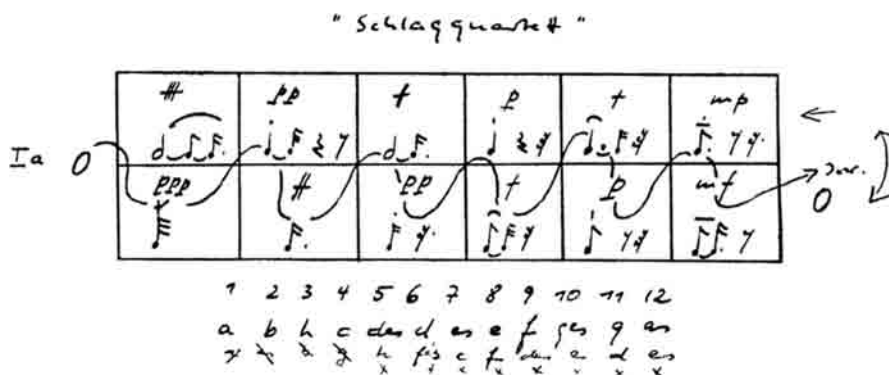 "Schlagquartett"
fff pp f p f mp
Ia O
ppp ff pp f p mf O
1 2 3 4 5 6 7 8 9 10 11 12
a b h c des d es e f ges g as
h fis c f des e d es